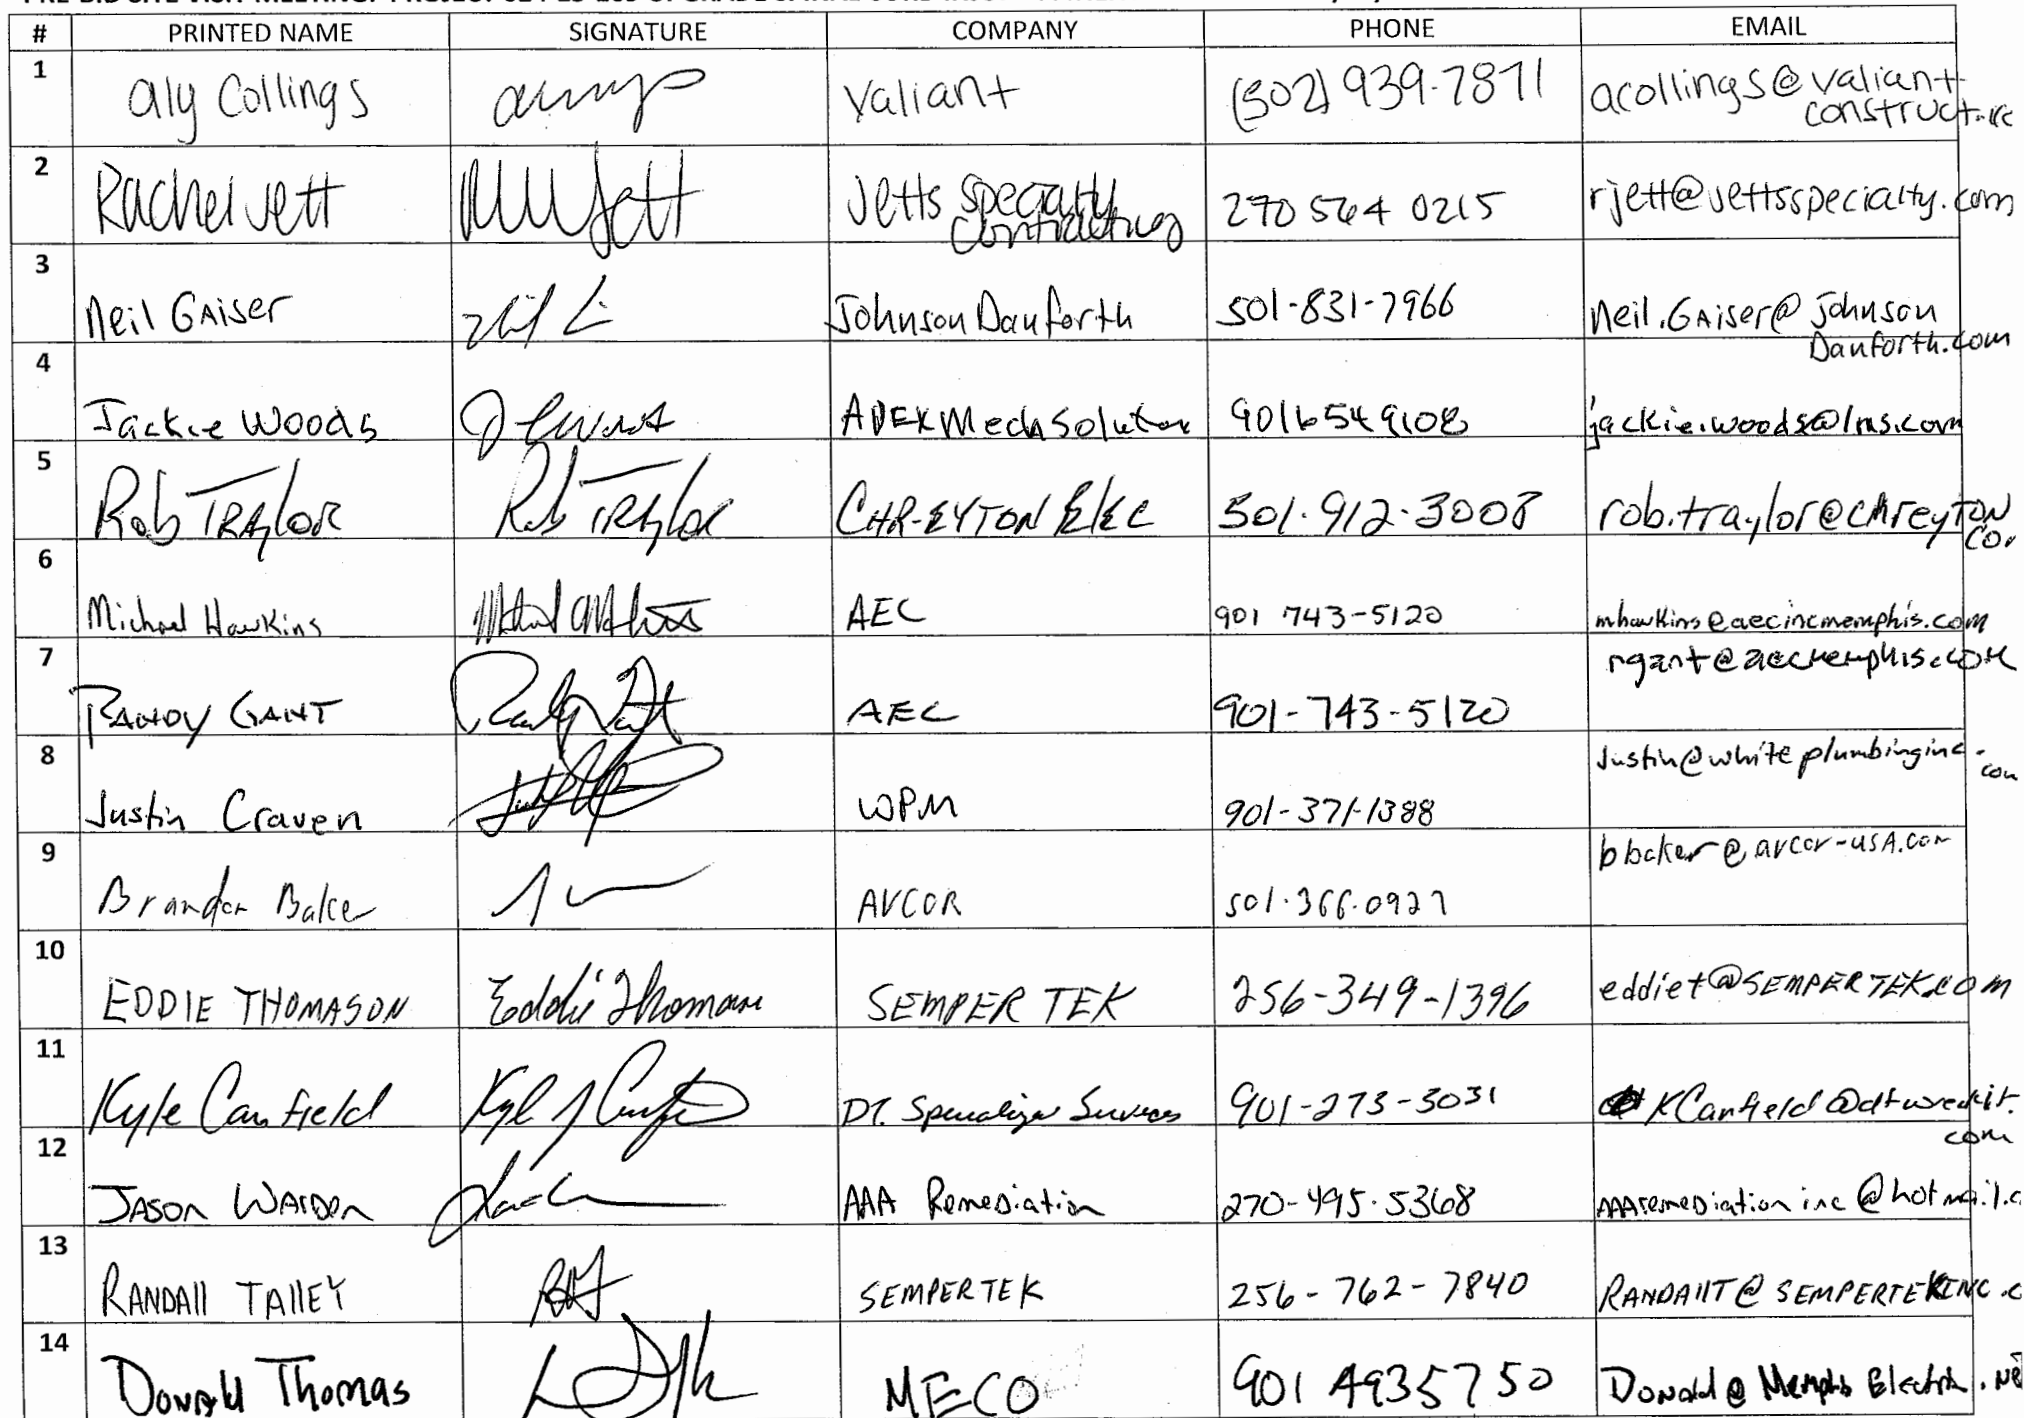 # PRINTED NAME SIGNATURE COMPANY PHONE EMAIL
1 aly Collings Valiant (502) 939-7871 acollings@valiant
construct.
2 Rachel Jett Jett Jetts Specialty 270 564 0215 rjett@jettsspecialty.com
Contracting
3 Neil GAiser Johnson Danforth 501-831-7966 Neil.GAiser@Johnson
Danforth.com
4 Jackie Woods APEX Mech Solution 9016549108 jackie.woods@lms.com
5 Rob TRAylor Rob TRAylor CHR-EYTON ElEC 501-912-3008 rob.traylor@chreyTON
Co.
6 Michael Hawkins AEC 901 743-5120 mhawkins@aecincmemphis.com
7 RANDY GANT AEC 901-743-5120 rgant@aecmemphis.com
8 Justin Craven WPM 901-371-1388 Justin@whiteplumbinginc.
com
9 Brandon Baker AVCOR 501.366.0927 bbaker@avcor-usA.com
10 EDDIE THOMASON Eddie Thomason SEMPER TEK 256-349-1396 eddiet@SEMPERTEK.COM
11 Kyle Canfield DT. Specialized Services 901-273-3031 KCanfield@dtwreckit.
com
12 JASON WARDEN AAA Remediation 270-495-5368 AAAremediation inc@hotmail.c
13 RANDAll TAllEY SEMPERTEK 256-762-7840 RANDAllT@SEMPERTEKINC.C
14 Donald Thomas MECO 901 4935750 Donald@Memphis Electric.Ne